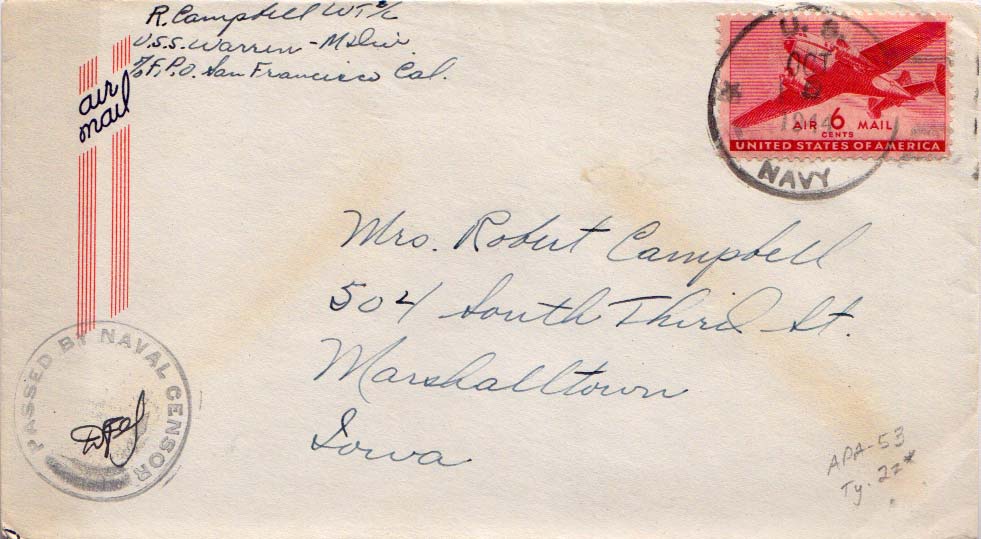 R. Campbell WT 2/c
U.S.S. Warren - M Div.
℅ F.P.O. San Francisco Cal.
air
mail
U. S.
OCT
8
1944
NAVY
AIR 6 MAIL
CENTS
UNITED STATES OF AMERICA
Mrs. Robert Campbell
504 South Third St.
Marshalltown
Iowa
PASSED BY NAVAL CENSOR
APA-53
Ty. 2z*